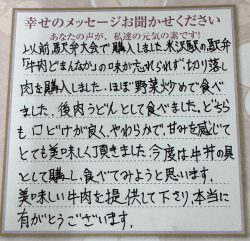 幸せのメッセージお聞かせください
あなたの声が、私達の元気の素です！
以前駅弁大会で購入しました、米沢駅の駅弁
「牛肉どまんなか」の味が忘れられず、切り落し
肉を購入しました。ほぼ野菜炒めで食べ
ました。後肉うどんとして食べました。どちら
も口どけが良く、やわらかで、甘みを感じて
とても美味しく頂きました。今度は牛丼の具
として購し、食べてみようと思います。
美味しい牛肉を提供して下さり、本当に
有がとうございます。